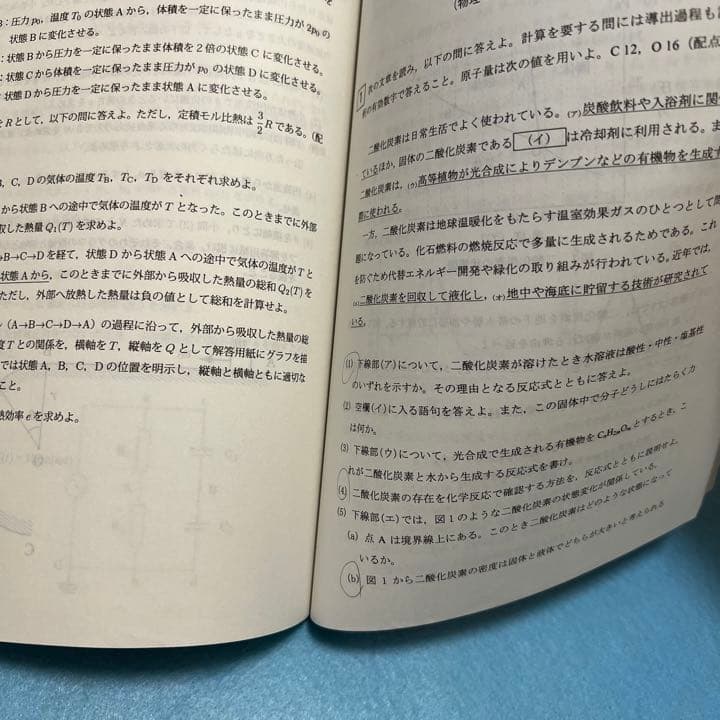 B:圧力p₀,温度T₀の状態Aから,体積を一定に保ったまま圧力が2p₀の
状態Bに変化させる。
:状態Bから圧力を一定に保ったまま体積を2倍の状態Cに変化させる。
:状態Cから体積を一定に保ったまま圧力がp₀の状態Dに変化させる。
状態Dから圧力を一定に保ったまま状態Aに変化させる。
をRとして,以下の問に答えよ。ただし,定積モル比熱は3/2Rである。(配
B,C,Dの気体の温度T_B,T_C,T_Dをそれぞれ求めよ。
から状態Bへの途中で気体の温度がTとなった。このときまでに外部
収した熱量Q₁(T)を求めよ。
→B→C→Dを経て,状態Dから状態Aへの途中で気体の温度がTと
状態Aから,このときまでに外部から吸収した熱量の総和Q₂(T)を
ただし,外部へ放熱した熱量は負の値として総和を計算せよ。
(A→B→C→D→A)の過程に沿って,外部から吸収した熱量の総
度Tとの関係を,横軸をT,縦軸をQとして解答用紙にグラフを描
では状態A,B,C,Dの位置を明示し,縦軸と横軸ともに適切な
こと。
熱効率eを求めよ。
(物理
1 次の文章を読み,以下の問に答えよ。計算を要する問には導出過程も
の有効数字で答えること。原子量は次の値を用いよ。C 12,O 16(配点
二酸化炭素は日常生活でよく使われている。(ア)炭酸飲料や入浴剤に関
ているほか,固体の二酸化炭素である(イ)は冷却剤に利用される。ま
二酸化炭素は,(ウ)高等植物が光合成によりデンプンなどの有機物を生成す
際に使われる。
一方,二酸化炭素は地球温暖化をもたらす温室効果ガスのひとつとして問
題になっている。化石燃料の燃焼反応で多量に生成されるためである。これ
を防ぐため代替エネルギー開発や緑化の取り組みが行われている。近年では,
(エ)二酸化炭素を回収して液化し,(オ)地中や海底に貯留する技術が研究されて
いる。
(1) 下線部(ア)について,二酸化炭素が溶けたとき水溶液は酸性・中性・塩基性
のいずれを示すか。その理由となる反応式とともに答えよ。
(2) 空欄(イ)に入る語句を答えよ。また,この固体中で分子どうしにはたらく力
は何か。
(3) 下線部(ウ)について,光合成で生成される有機物をCₙH₂ₙOₙとするとき,こ
れが二酸化炭素と水から生成する反応式を書け。
(4) 二酸化炭素の存在を化学反応で確認する方法を,反応式とともに説明せよ。
(5) 下線部(エ)では,図1のような二酸化炭素の状態変化が関係している。
(a) 点Aは境界線上にある。このとき二酸化炭素はどのような状態になって
いるか。
(b) 図1から二酸化炭素の密度は固体と液体でどちらが大きいと考えられる